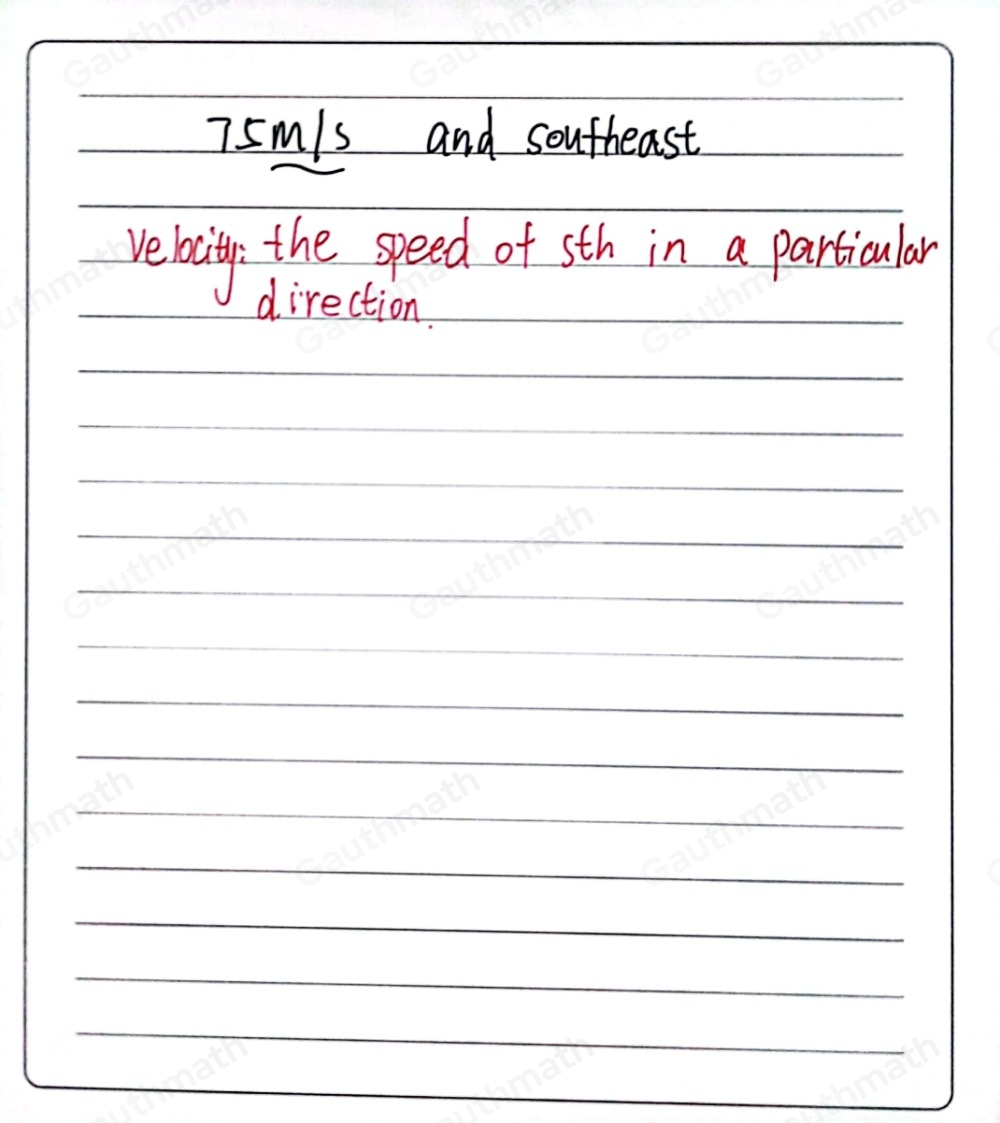 75m/s and southeast
velocity: the speed of sth in a particular
direction.